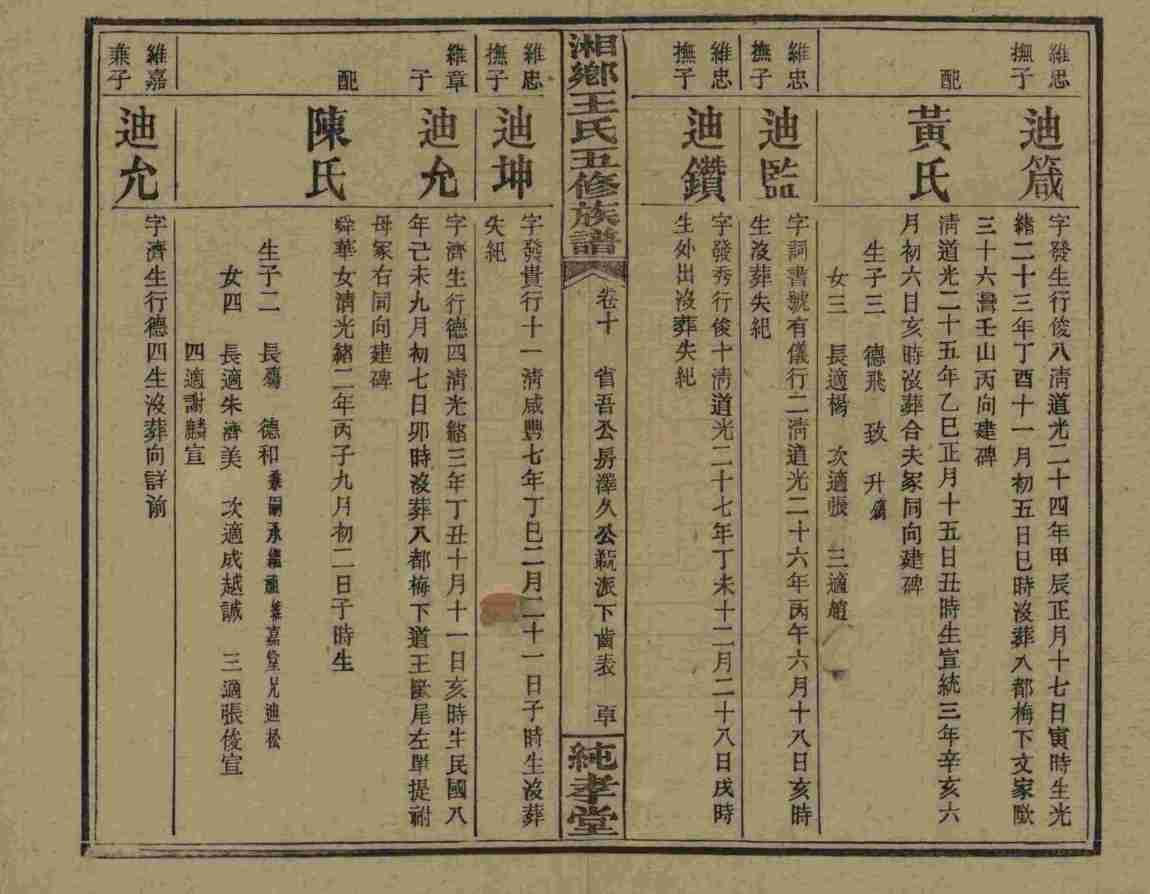 維忠
撫子
迪箴
字發生行俊八清道光二十四年甲辰正月十七日寅時生光
緒二十三年丁酉十一月初五日巳時沒葬八都梅下文家
三十六灣壬山丙向建碑
配
黃氏
清道光二十五年乙巳正月十五日丑時生宣統三年辛亥六
月初六日亥時沒葬合夫冢同向建碑
生子三 德飛 致 升殤
女三 長適楊 次適張 三適趙
維忠
撫子
迪監
字詞書號有儀行二清道光二十六年丙午六月十八日亥時
生沒葬失紀
維忠
撫子
迪鑽
字發秀行俊十清道光二十七年丁未十二月二十八日戌時
生外出沒葬失紀
湘鄉王氏五修族譜
卷十 省吾公房澤久公派下齒表
純孝堂
維忠
撫子
迪坤
字發貴行十一清咸豐七年丁巳二月二十一日子時生沒葬
失紀
維章
子
迪允
字濟生行德四清光緒三年丁丑十月十一日亥時生民國八
年己未九月初七日卯時沒葬八都梅下道王尾左單提祔
母冢右同向建碑
配
陳氏
舜華女清光緒二年丙子九月初二日子時生
生子二 長殤 德和兼嗣承繼維嘉堂兄迪松
女四 長適朱濟美 次適成越誠 三適張俊宣
四適謝麟宣
維嘉
兼子
迪允
字濟生行德四生沒葬向詳前